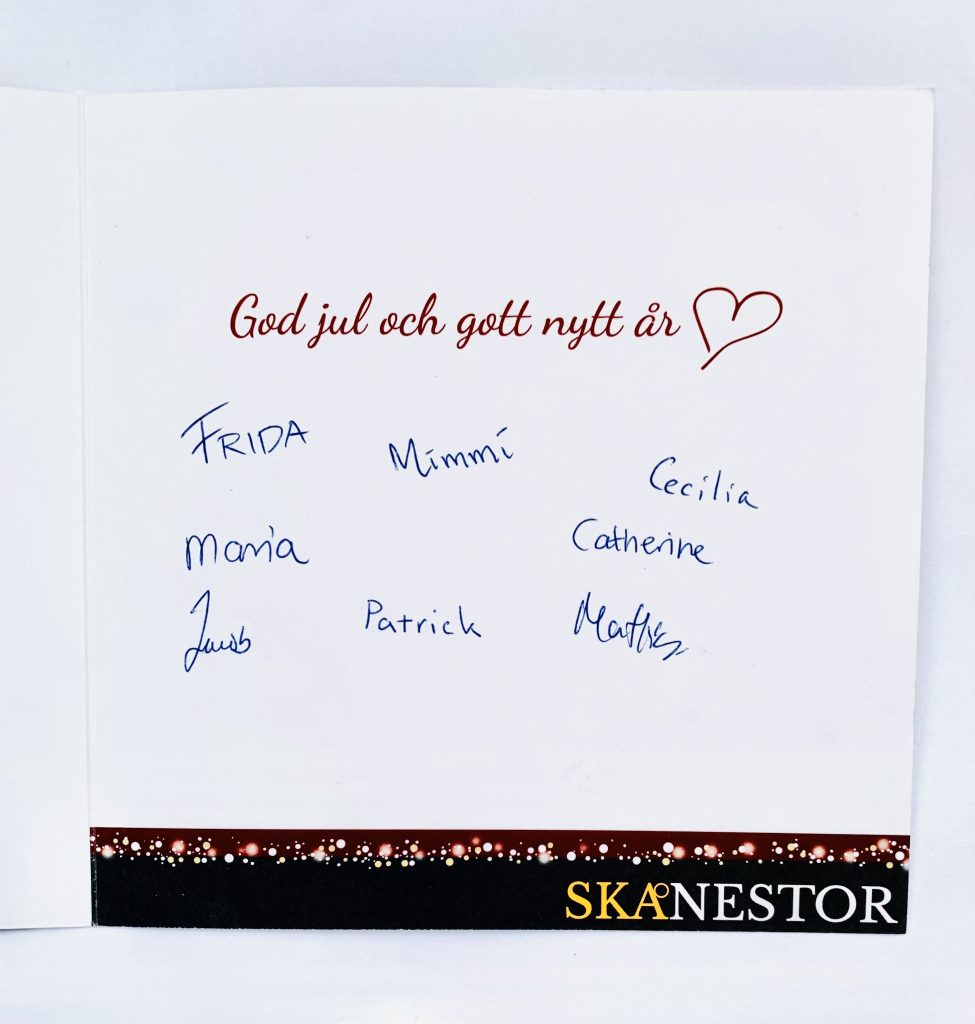 God jul och gott nytt år
FRIDA
Mimmi
Cecilia
Maria
Catherine
Jacob
Patrick
Mathias
SKÅNESTOR